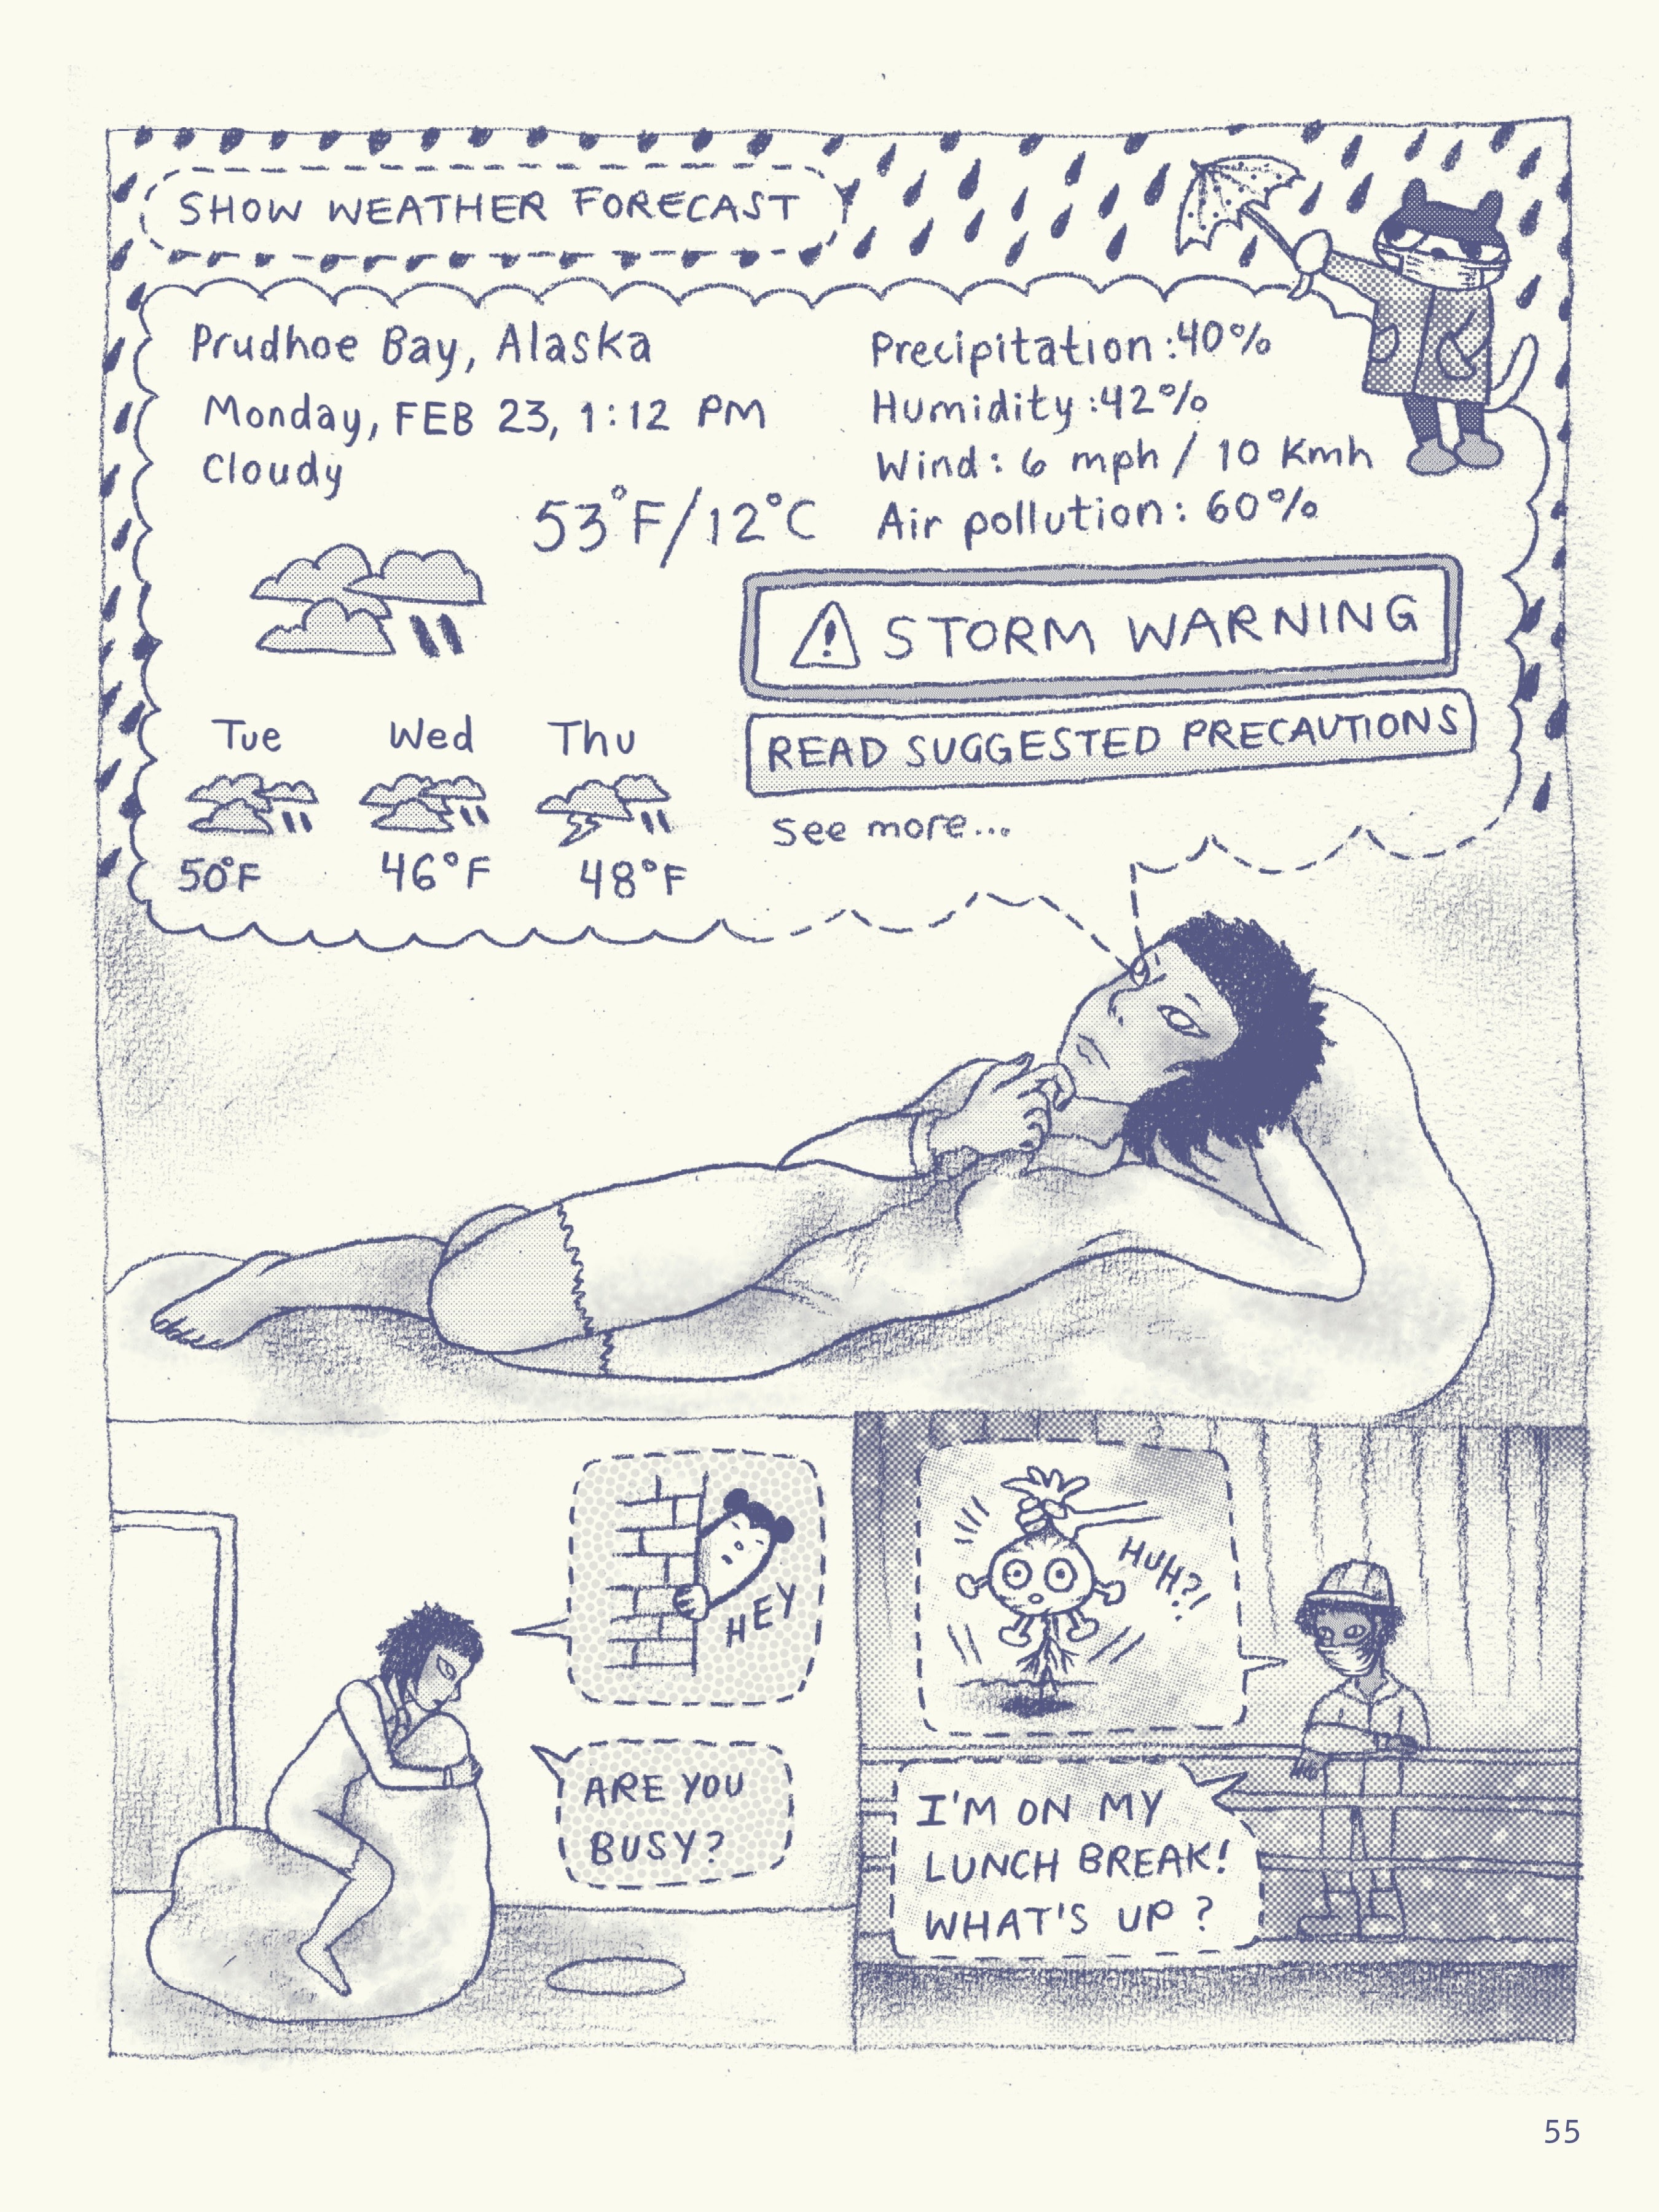 SHOW WEATHER FORECAST
Prudhoe Bay, Alaska
Monday, FEB 23, 1:12 PM
Cloudy
53°F/12°C
Precipitation :40%
Humidity :42%
Wind: 6 mph / 10 Kmh
Air pollution: 60%
! STORM WARNING
READ SUGGESTED PRECAUTIONS
See more...
Tue Wed Thu
50°F 46°F 48°F
HEY
ARE YOU
BUSY?
HUH?!
I'M ON MY
LUNCH BREAK!
WHAT'S UP?
55